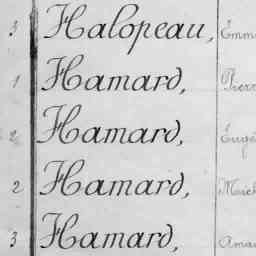 3 Halopeau, Emm
1 Hamard, Pierr
2 Hamard, Eugé
2 Hamard, Mich
3 Hamard, Aman